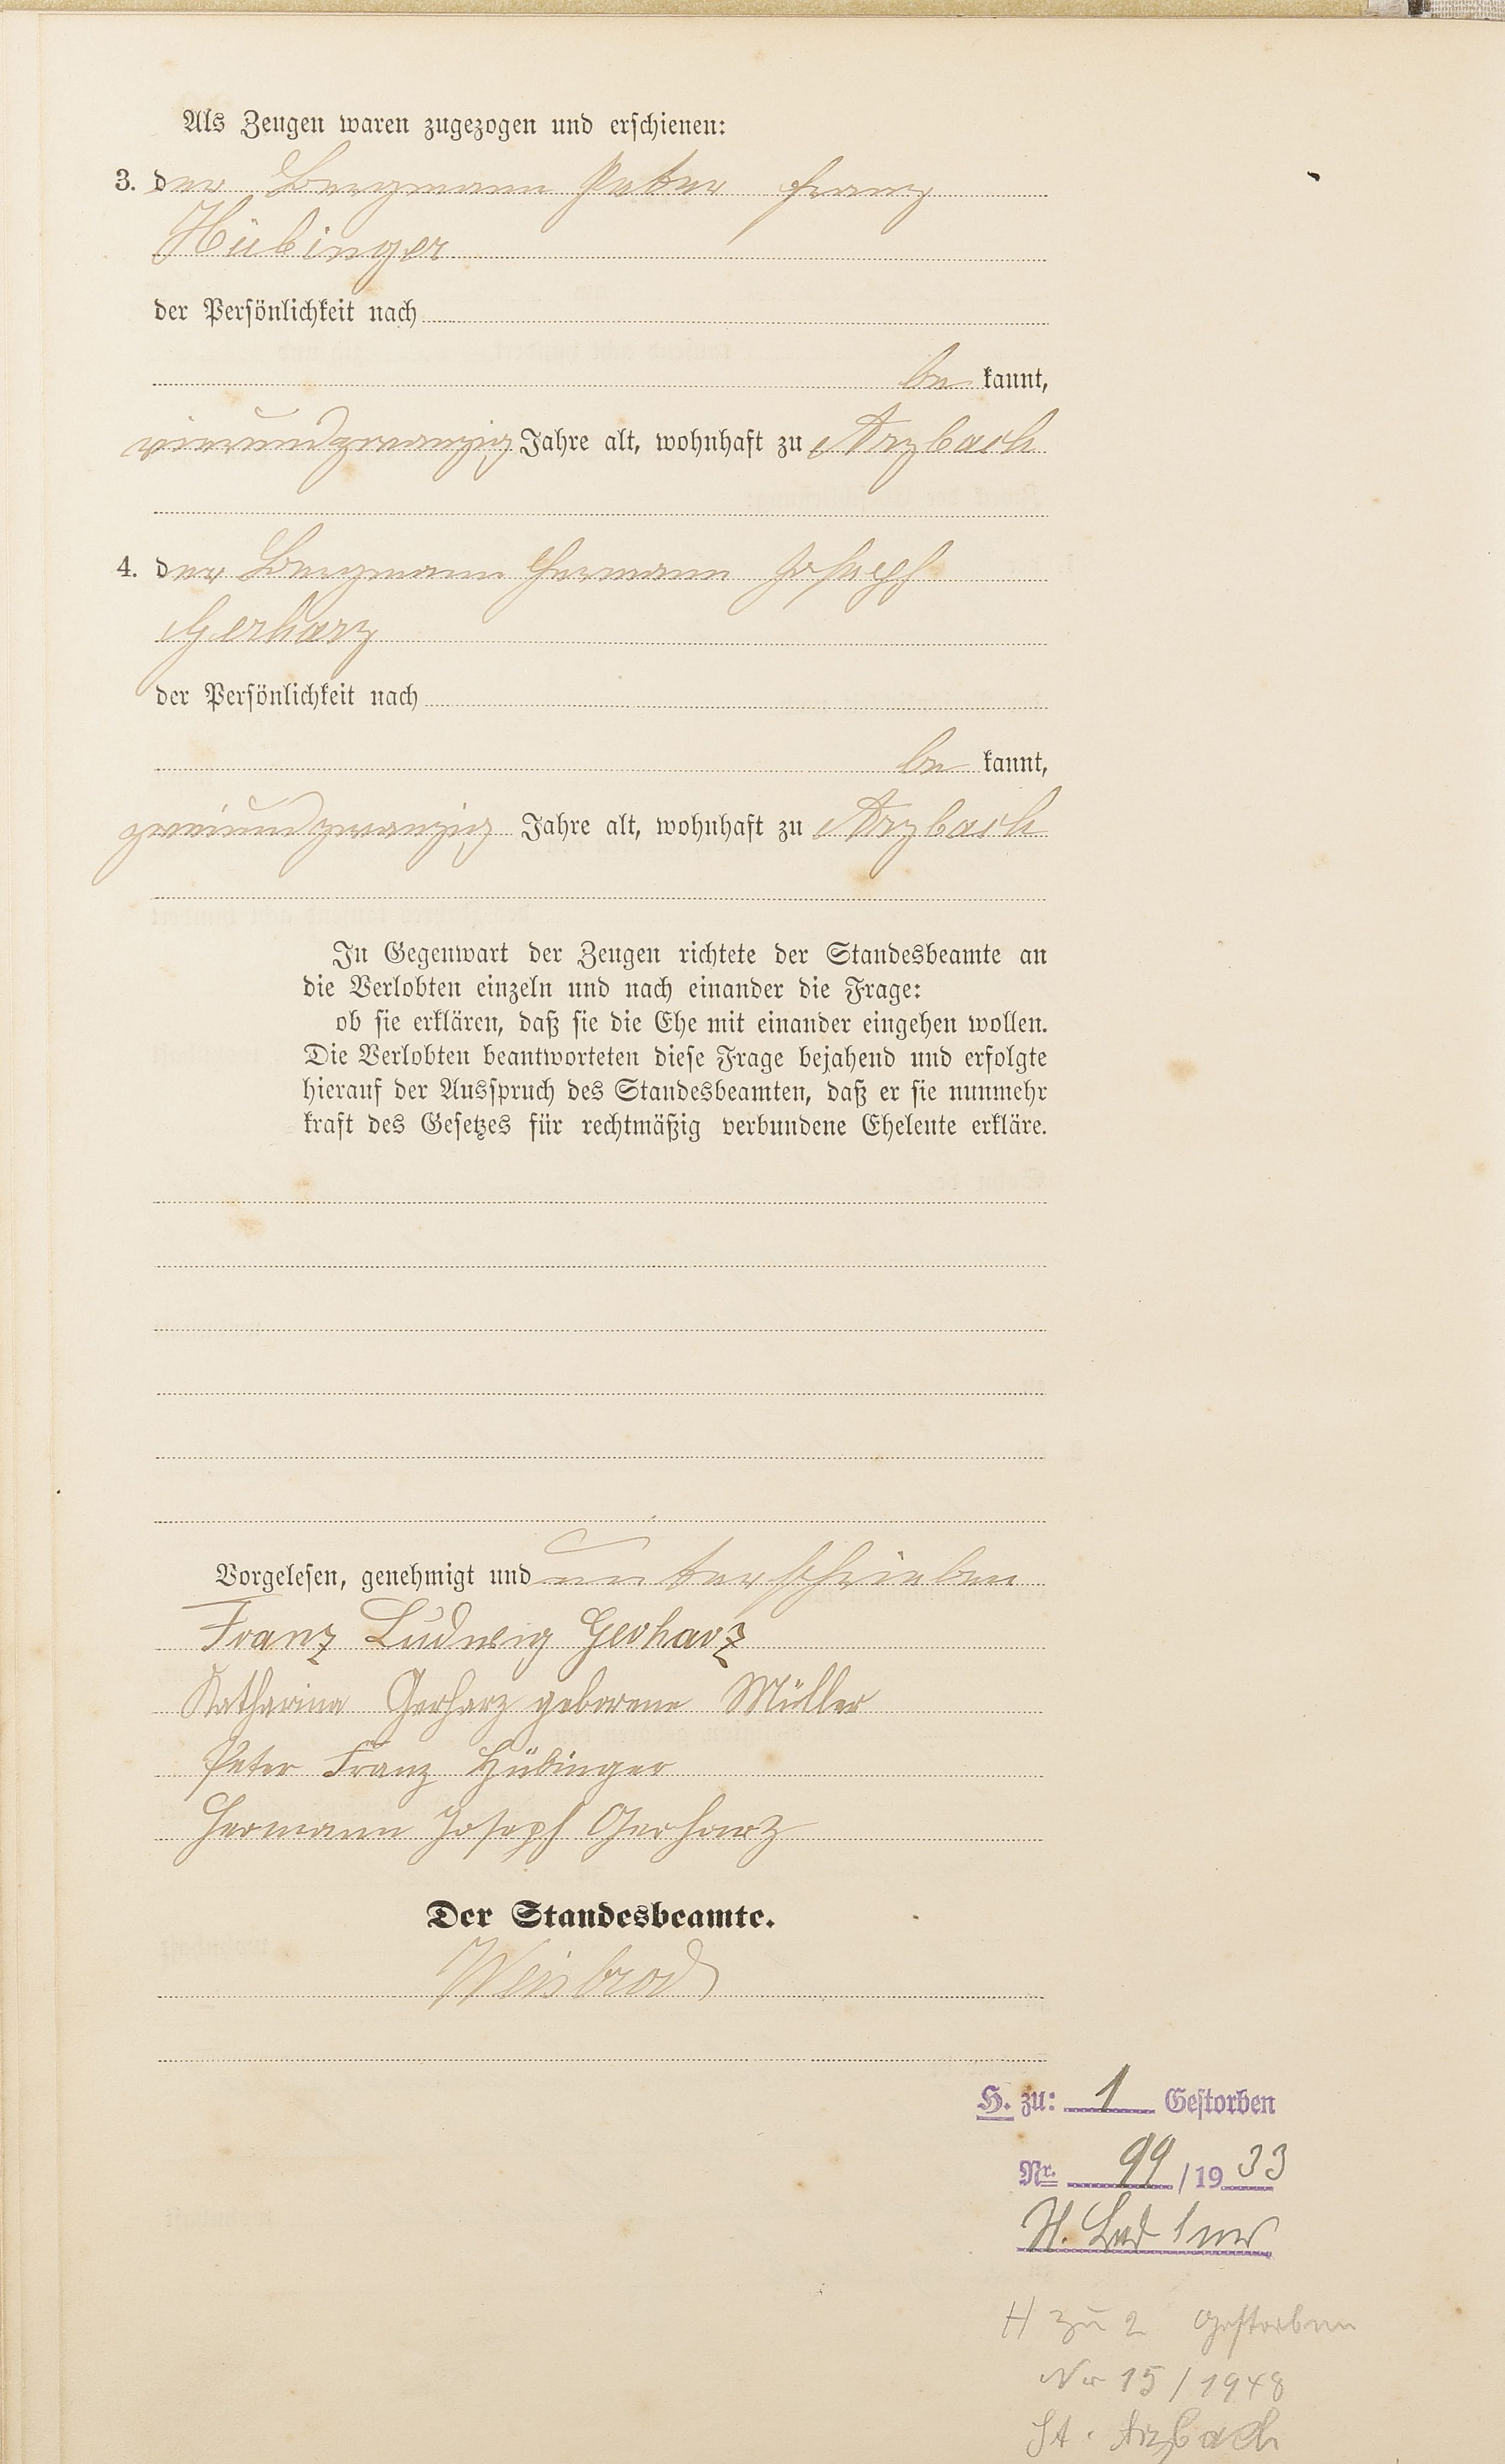 Als Zeugen waren zugezogen und erschienen:
3. der Bergmann Peter Franz
Hübinger
der Persönlichkeit nach
be kannt,
vierundzwanzig Jahre alt, wohnhaft zu Arzbach
4. der Bergmann Hermann Joseph
Gerharz
der Persönlichkeit nach
be kannt,
zweiundzwanzig Jahre alt, wohnhaft zu Arzbach
In Gegenwart der Zeugen richtete der Standesbeamte an
die Verlobten einzeln und nach einander die Frage:
ob sie erklären, daß sie die Ehe mit einander eingehen wollen.
Die Verlobten beantworteten diese Frage bejahend und erfolgte
hierauf der Ausspruch des Standesbeamten, daß er sie nunmehr
kraft des Gesetzes für rechtmäßig verbundene Eheleute erkläre.
Vorgelesen, genehmigt und unterschrieben
Franz Ludwig Gerharz
Katharina Gerharz geborene Müller
Peter Franz Hübinger
Hermann Joseph Gerharz
Der Standesbeamte.
Weisbrod
H. zu: 1 Gestorben
Nr. 99 / 1933
H. zu 2 Gestorben
Nr 15 / 1948
St. Arzbach